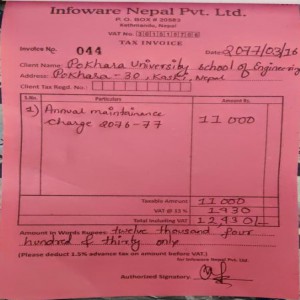 Infoware Nepal Pvt. Ltd.
P. O. BOX # 20583
Kathmandu, Nepal
VAT No.
TAX INVOICE
Invoice No. 044 Date: 2077/03/16
Client Name: Pokhara University school of Engineering
Address: Pokhara - 30, Kaski, Nepal
Client Tax Regd. No.
S.No. Particulars Amount Rs.
1) Annual maintainance 11000
charge 2076-77
Taxable Amount 11000
VAT @ 13 % 1430
Total Including VAT 12,430/--
Amount in Words Rupees twelve thousand four
hundred & thirty only
(Please deduct 1.5% advance tax on amount before VAT.)
for Infoware Nepal Pvt. Ltd.
Authorised Signatory